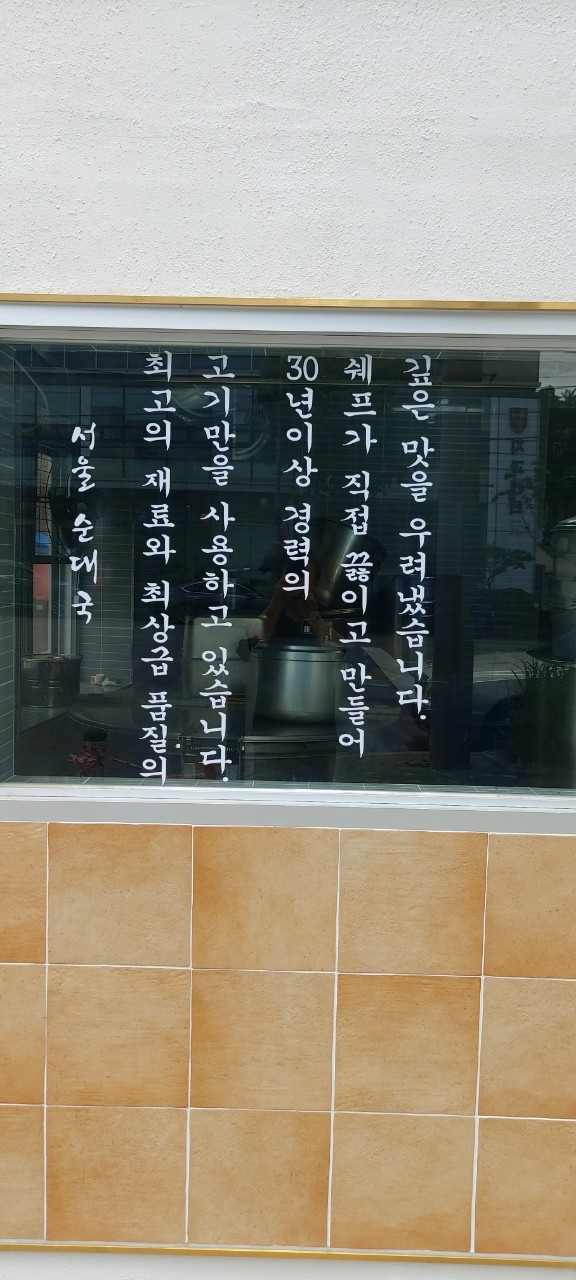 서울 순대국
최고의 재료와 최상급 품질의
고기만을 사용하고 있습니다.
30년이상 경력의
쉐프가 직접 끓이고 만들어
깊은 맛을 우려냈습니다.